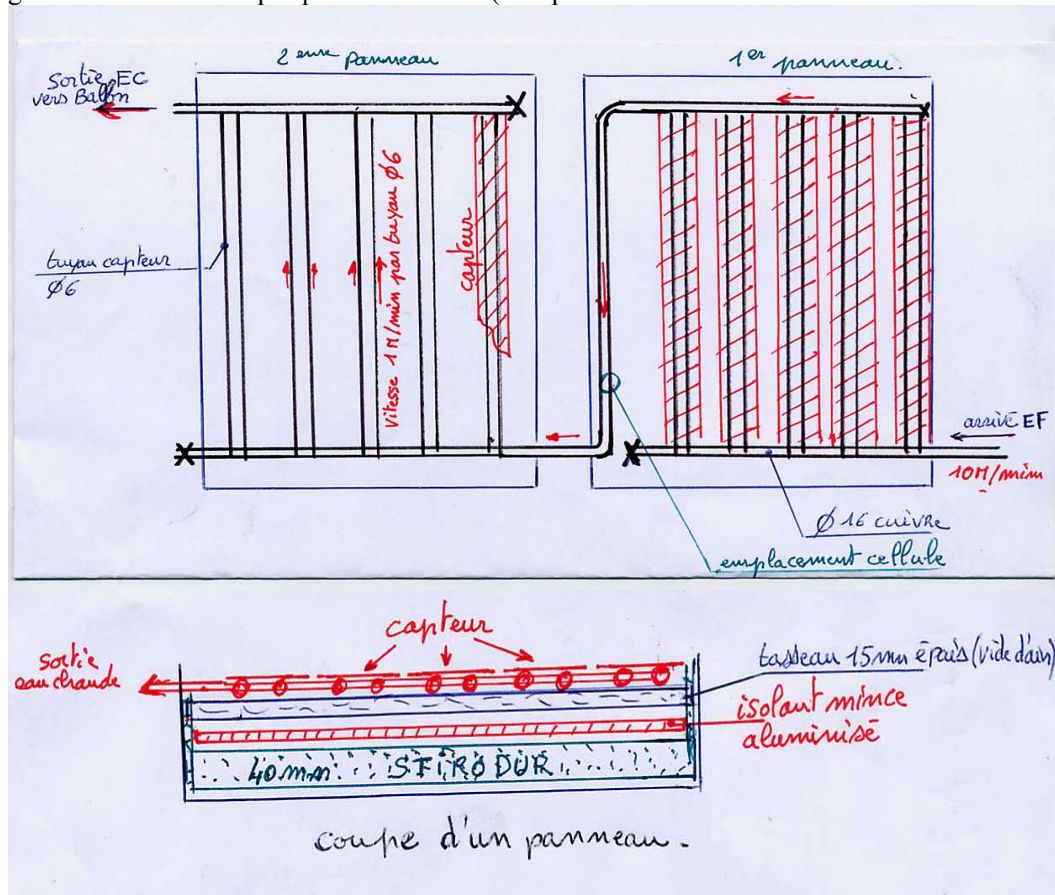 2eme panneau
1er panneau.
sortie EC
vers Ballon
tuyau capteur
Ø6
vitesse 1 M/min par tuyau Ø6
capteur
arrivé EF
10M/min
Ø 16 cuivre
emplacement cellule
capteur
sortie
eau chaude
tasseau 15mm épais (vide d'air)
isolant mince
aluminisé
40mm STIRODUR
coupe d'un panneau.